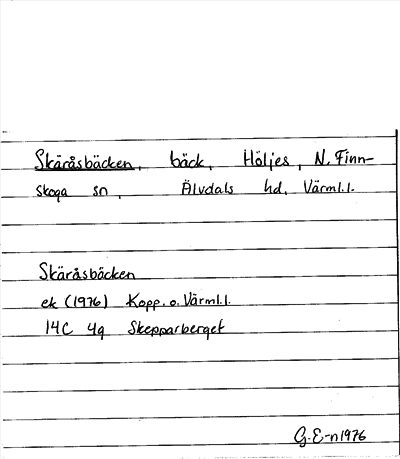 Skäråsbäcken, bäck, Höljes, N. Finn-
skoga sn, Älvdals hd, Värml.l.
Skäråsbäcken
ek (1976) Kopp. o. Värml.l.
14C 4g Skepparberget
G.E-n 1976